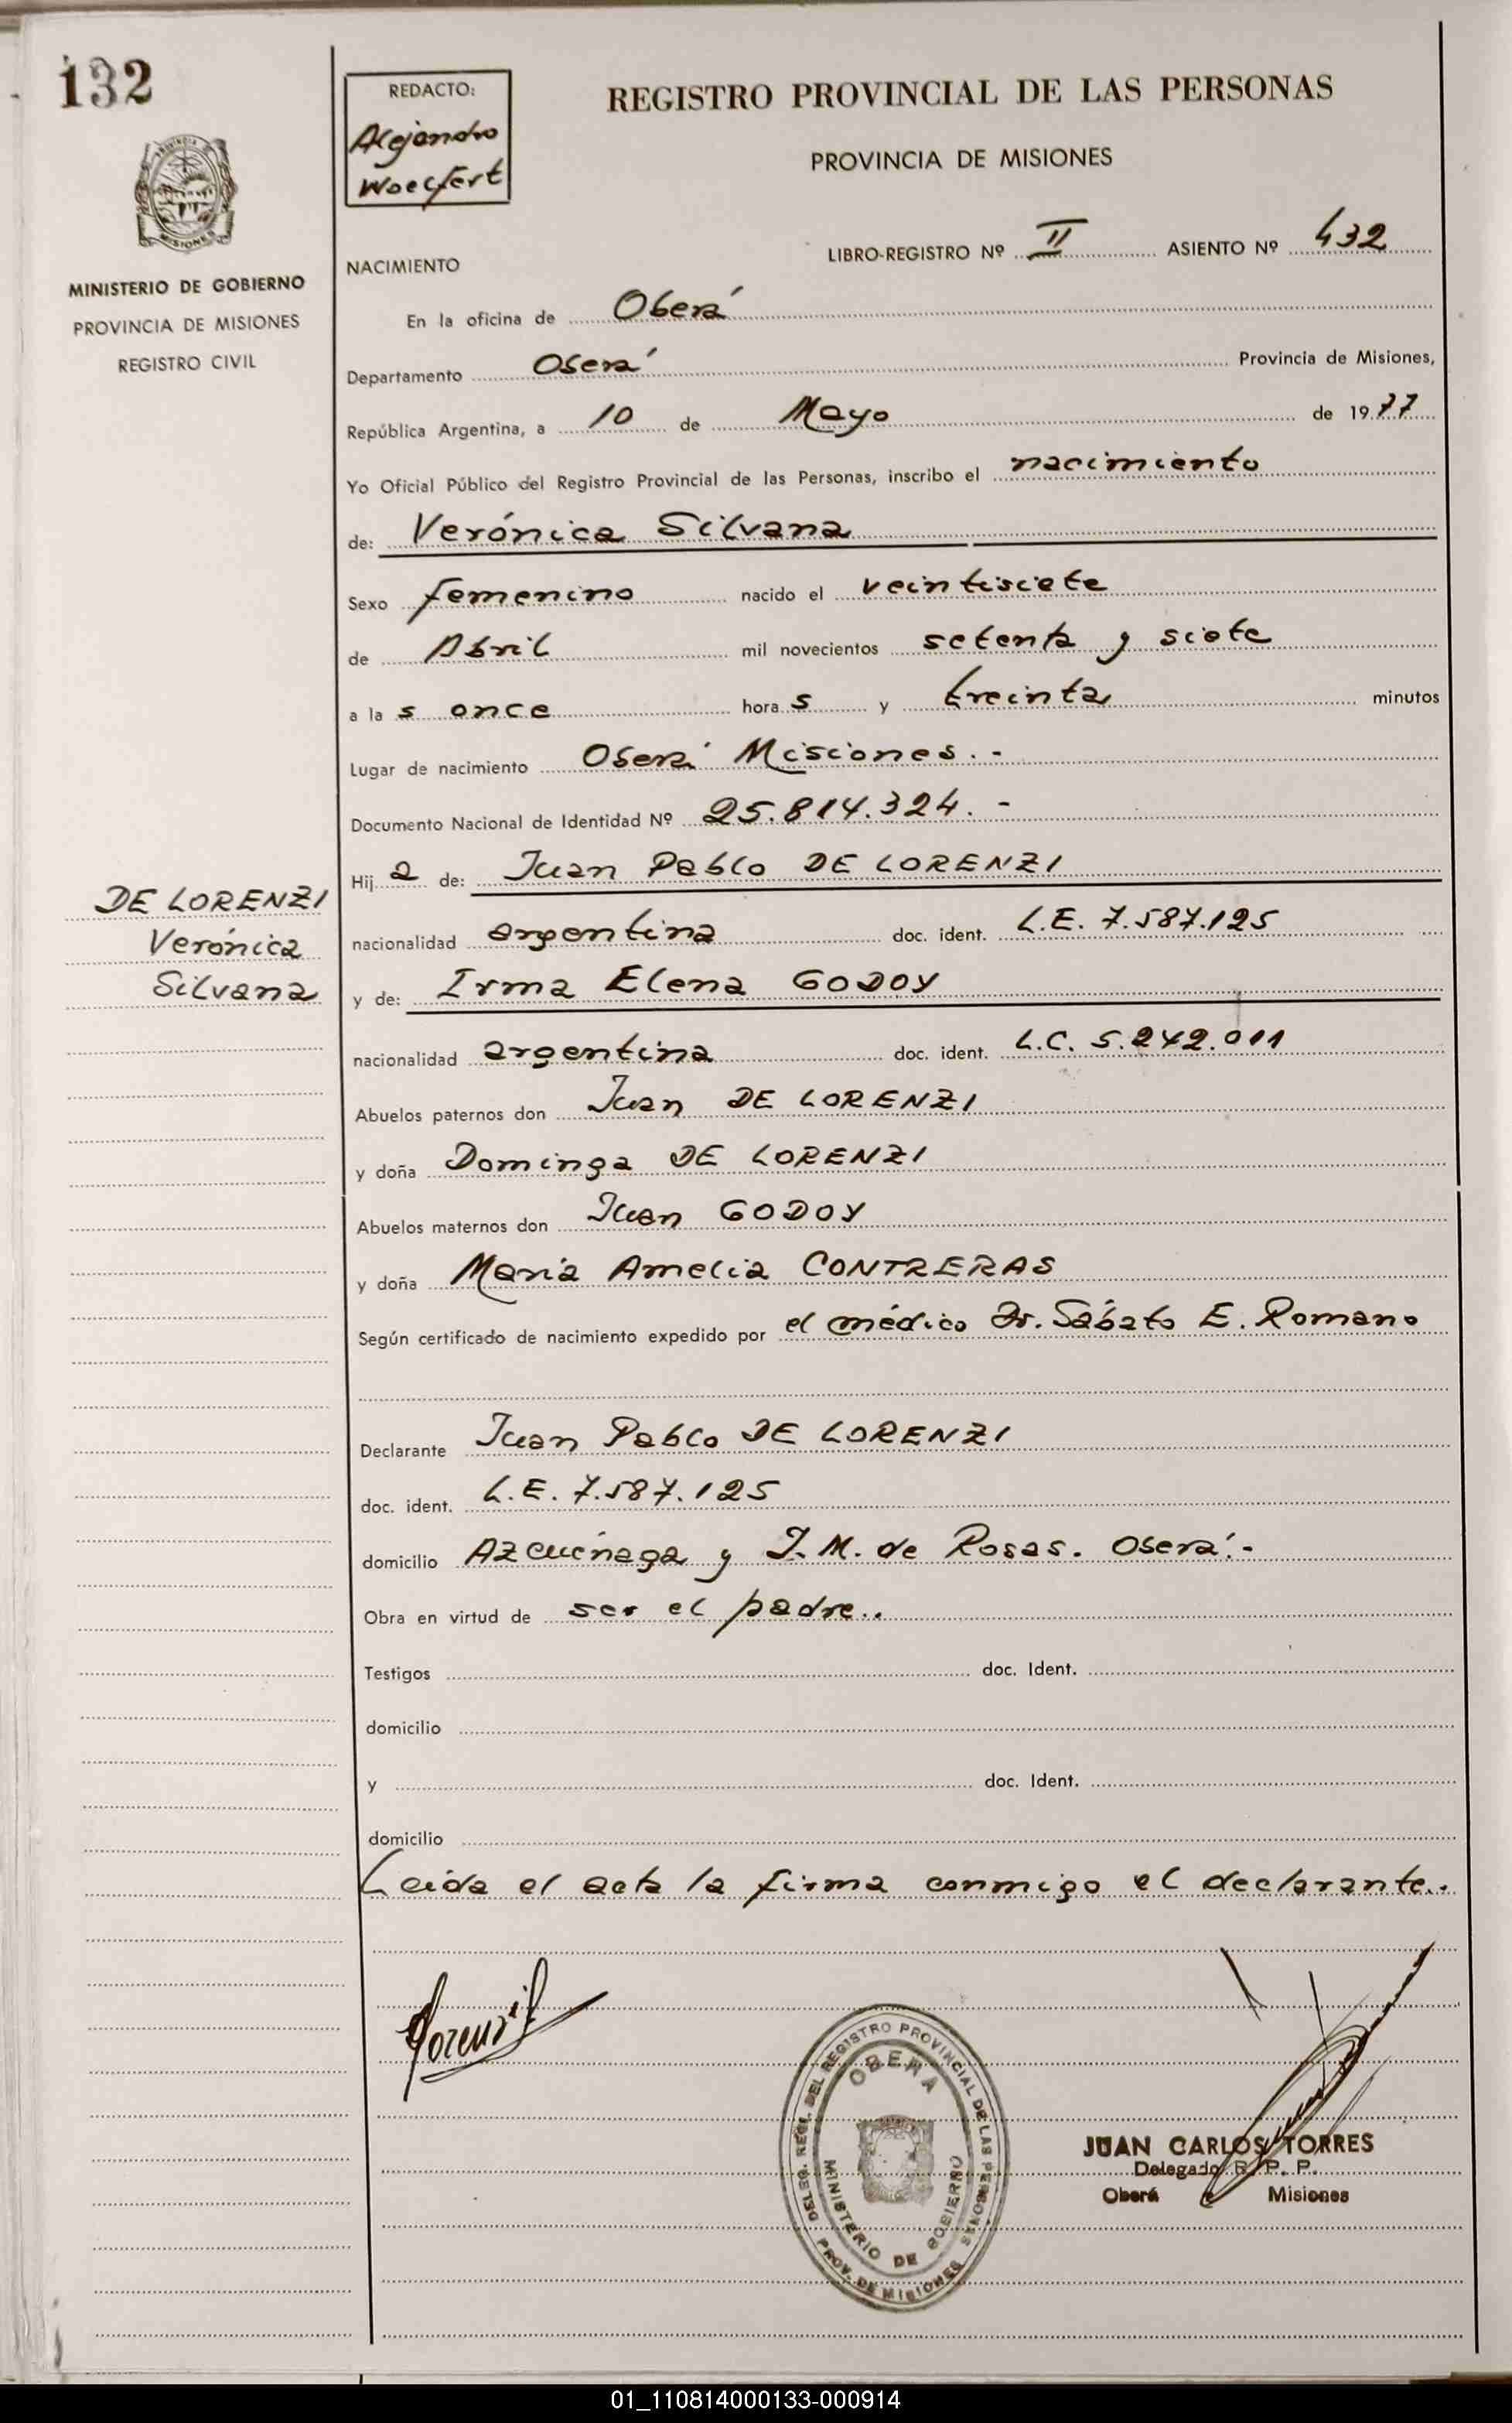 132
REDACTO:
Alejandro
Woelfert
REGISTRO PROVINCIAL DE LAS PERSONAS
PROVINCIA DE MISIONES
MISIONES
MINISTERIO DE GOBIERNO
PROVINCIA DE MISIONES
REGISTRO CIVIL
LIBRO-REGISTRO Nº II ASIENTO Nº 432
NACIMIENTO
En la oficina de Oberá
Departamento Oberá Provincia de Misiones,
República Argentina, a 10 de Mayo de 1977
Yo Oficial Público del Registro Provincial de las Personas, inscribo el nacimiento
de: Verónica Silvana
Sexo femenino nacido el veintisiete
de Abril mil novecientos setenta y siete
a las once horas y treinta minutos
Lugar de nacimiento Oberá Misiones.-
Documento Nacional de Identidad Nº 25.814.324.-
Hija de: Juan Pablo DE LORENZI
nacionalidad argentina doc. ident. L.E. 7.587.125
y de: Irma Elena GODOY
nacionalidad argentina doc. ident. L.C. 5.242.011
DE LORENZI
Verónica
Silvana
Abuelos paternos don Juan DE LORENZI
y doña Dominga DE LORENZI
Abuelos maternos don Juan GODOY
y doña María Amelia CONTRERAS
Según certificado de nacimiento expedido por el médico Dr. Sábato E. Romano
Declarante Juan Pablo DE LORENZI
doc. ident. L.E. 7.587.125
domicilio Azcuénaga y J.M. de Rosas. Oberá.-
Obra en virtud de ser el padre..
Testigos doc. Ident.
domicilio
y doc. Ident.
domicilio
Leída el acta la firma conmigo el declarante..
DELEG. REG. DEL REGISTRO PROVINCIAL DE LAS PERSONAS
OBERA
MINISTERIO DE GOBIERNO
PROV. DE MISIONES
JUAN CARLOS TORRES
Delegado R. P. P.
Oberá Misiones
01_110814000133-000914